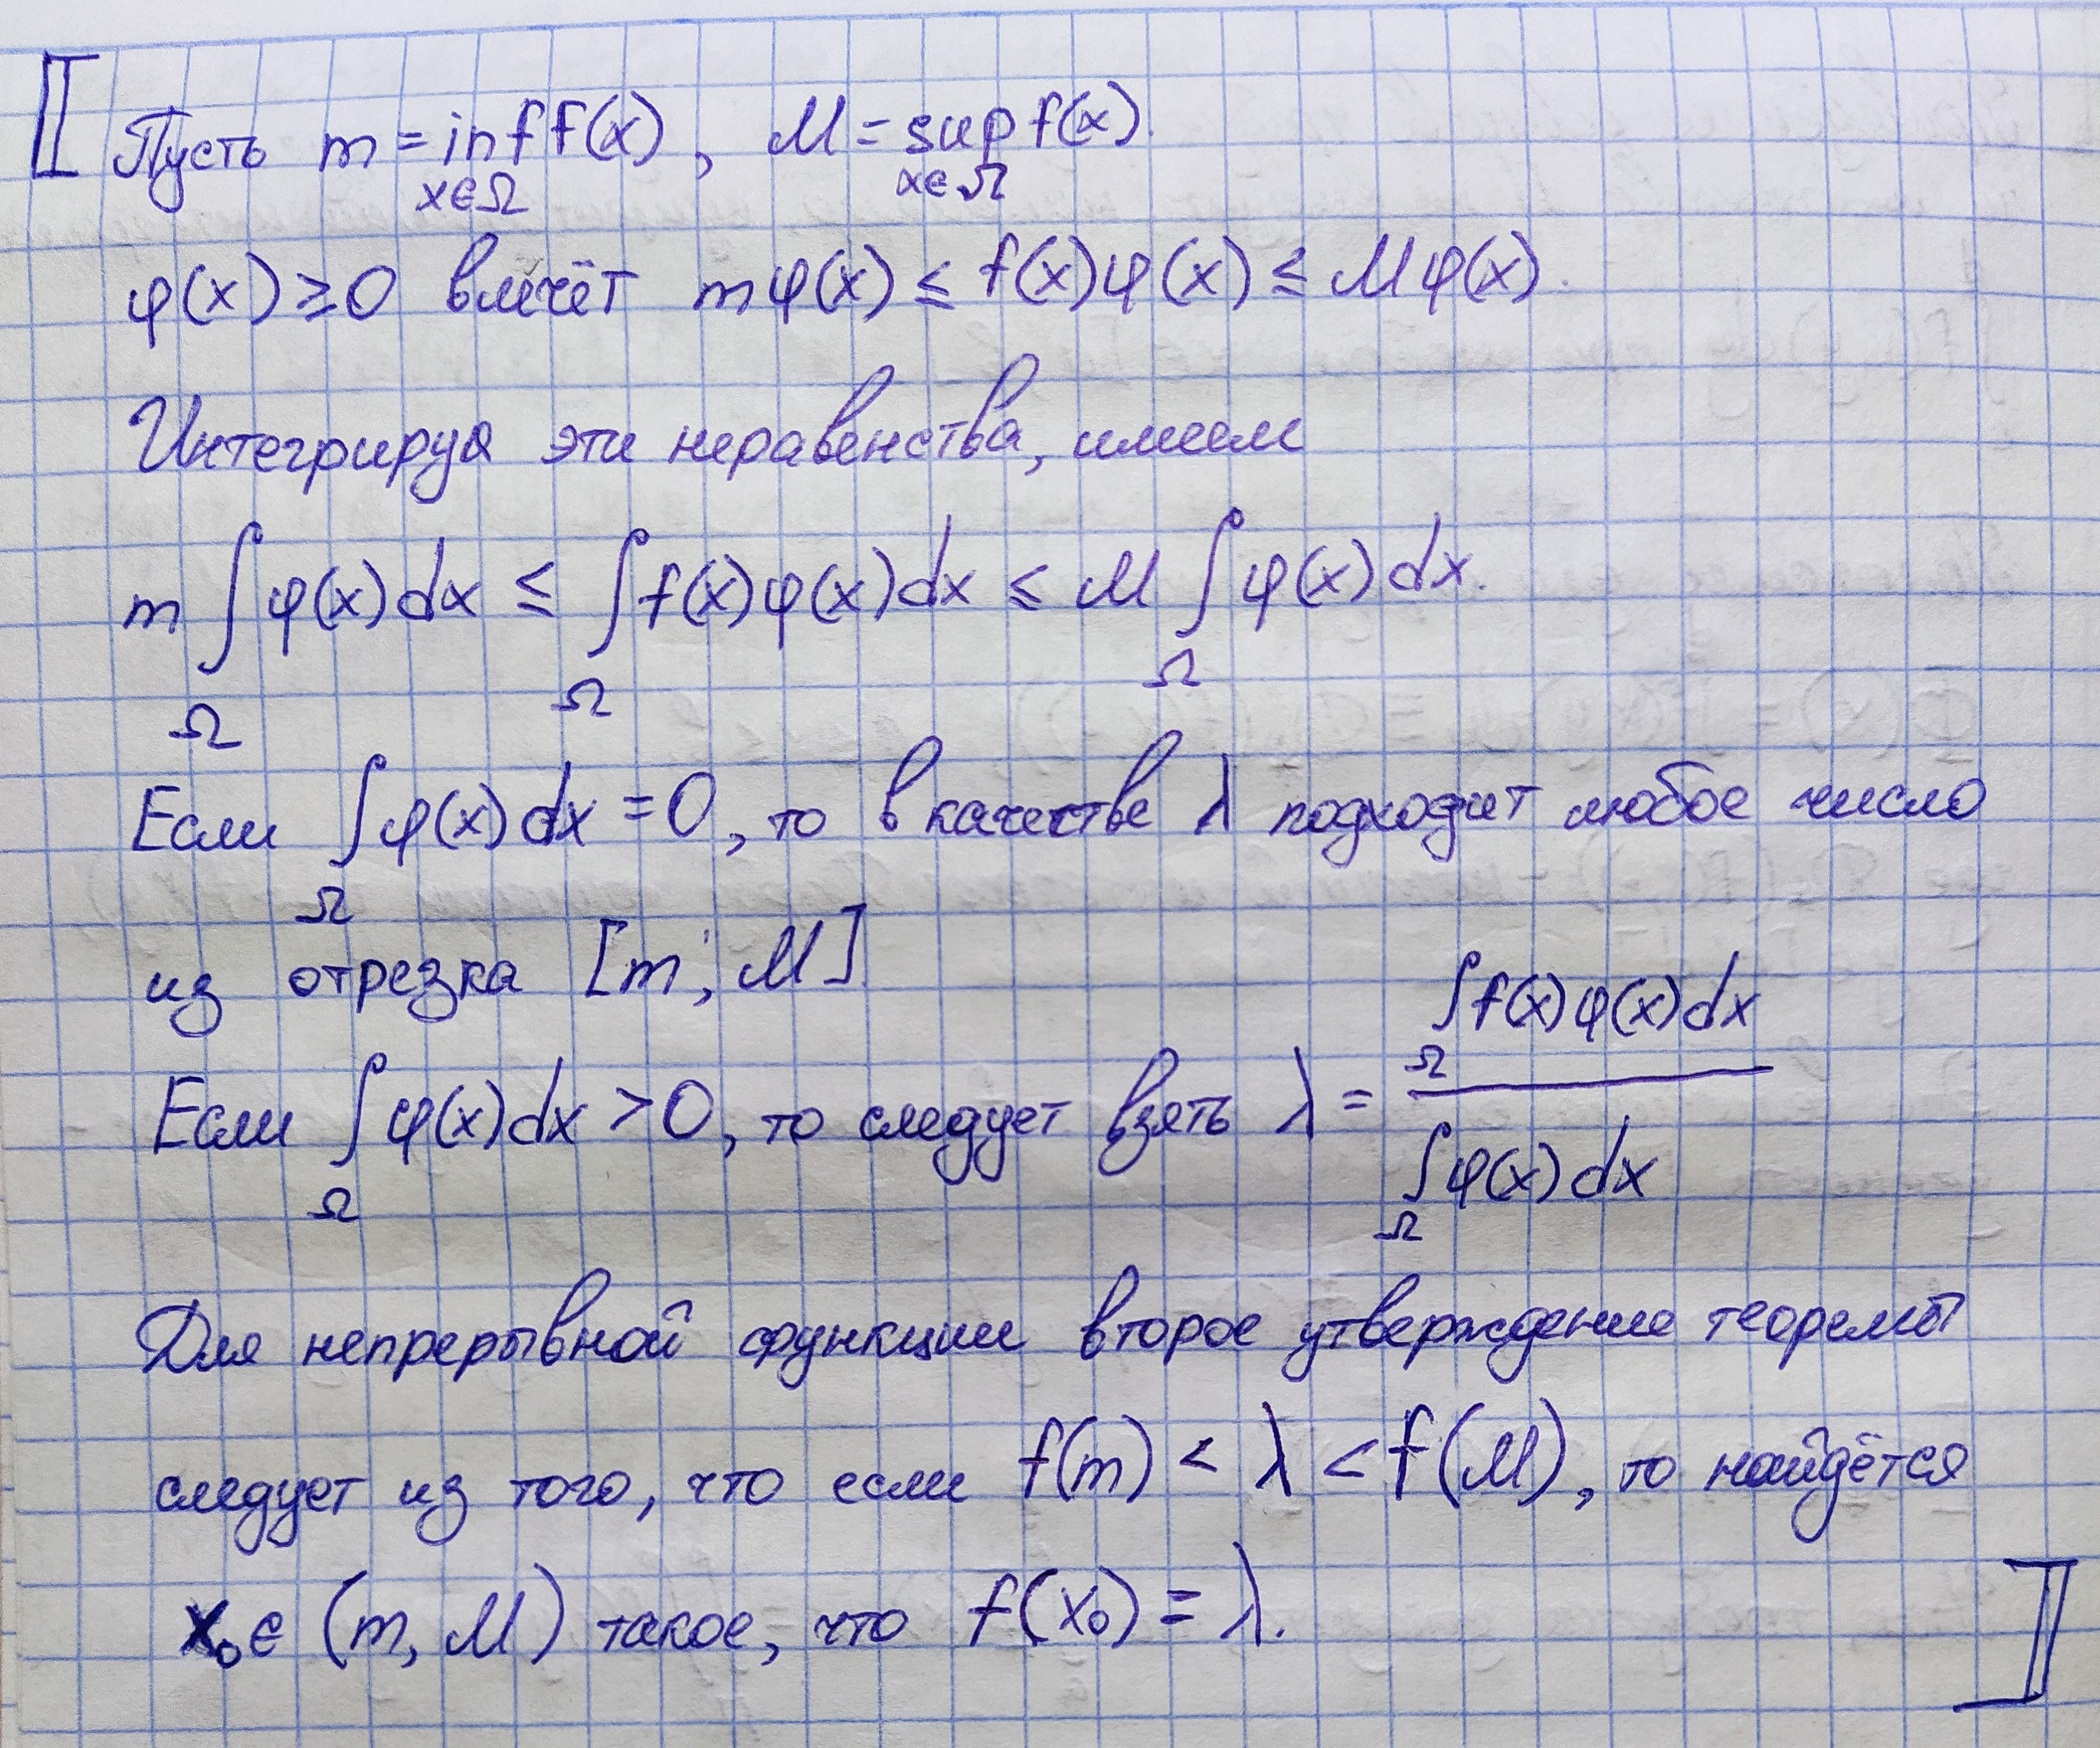 Пусть m = inf f(x), M = sup f(x).
x∈Ω x∈Ω
φ(x) ≥ 0 влечёт mφ(x) ≤ f(x)φ(x) ≤ Mφ(x).
Интегрируя эти неравенства, имеем
m ∫ φ(x) dx ≤ ∫ f(x) φ(x) dx ≤ M ∫ φ(x) dx.
Ω Ω Ω
Если ∫ φ(x) dx = 0, то в качестве λ подходит любое число
Ω
из отрезка [m; M].
Если ∫ φ(x) dx > 0, то следует взять λ = ∫ f(x) φ(x) dx / ∫ φ(x) dx
Ω Ω Ω
Для непрерывной функции второе утверждение теоремы
следует из того, что если f(m) < λ < f(M), то найдётся
x₀ ∈ (m, M) такое, что f(x₀) = λ.